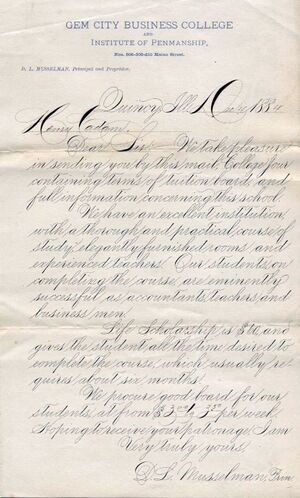 GEM CITY BUSINESS COLLEGE
AND
INSTITUTE OF PENMANSHIP,
Nos. 506-508-510 Maine Street.
D. L. MUSSELMAN, Principal and Proprietor.
Quincy, Ill. 188
Henry Eaton.
Dear Sir: We take pleasure
in sending you by this mail, College Jour
containing terms of tuition, board, and
full information concerning this school.
We have an excellent institution,
with a thorough and practical course of
study, elegantly furnished rooms and
experienced teachers. Our students, on
completing the course, are eminently
successful as accountants, teachers and
business men.
Life Scholarship is $60, and
gives the student all the time desired to
complete the course, which usually re-
quires about six months.
We procure good board for our
students, at from $ per week.
Hoping to receive your patronage, I am
Very truly yours,
D. L. Musselman, Prin.